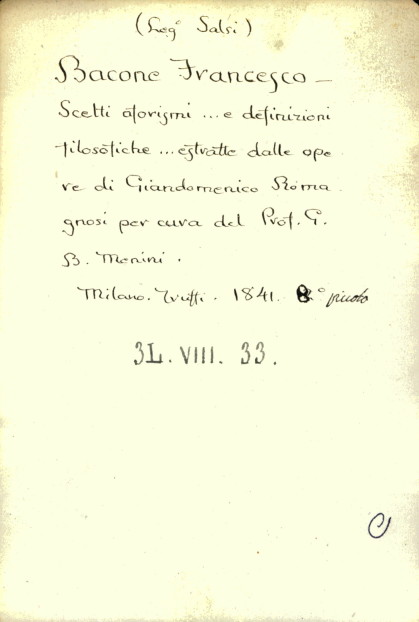 (Leg° Salsi)
Bacone Francesco —
Scelti aforismi ... e definizioni
filosofiche ... estratte dalle ope
re di Giandomenico Roma
gnosi per cura del Prof. G.
B. Menini.
Milano. Truffi. 1841. 8° piccolo
3L. VIII. 33.